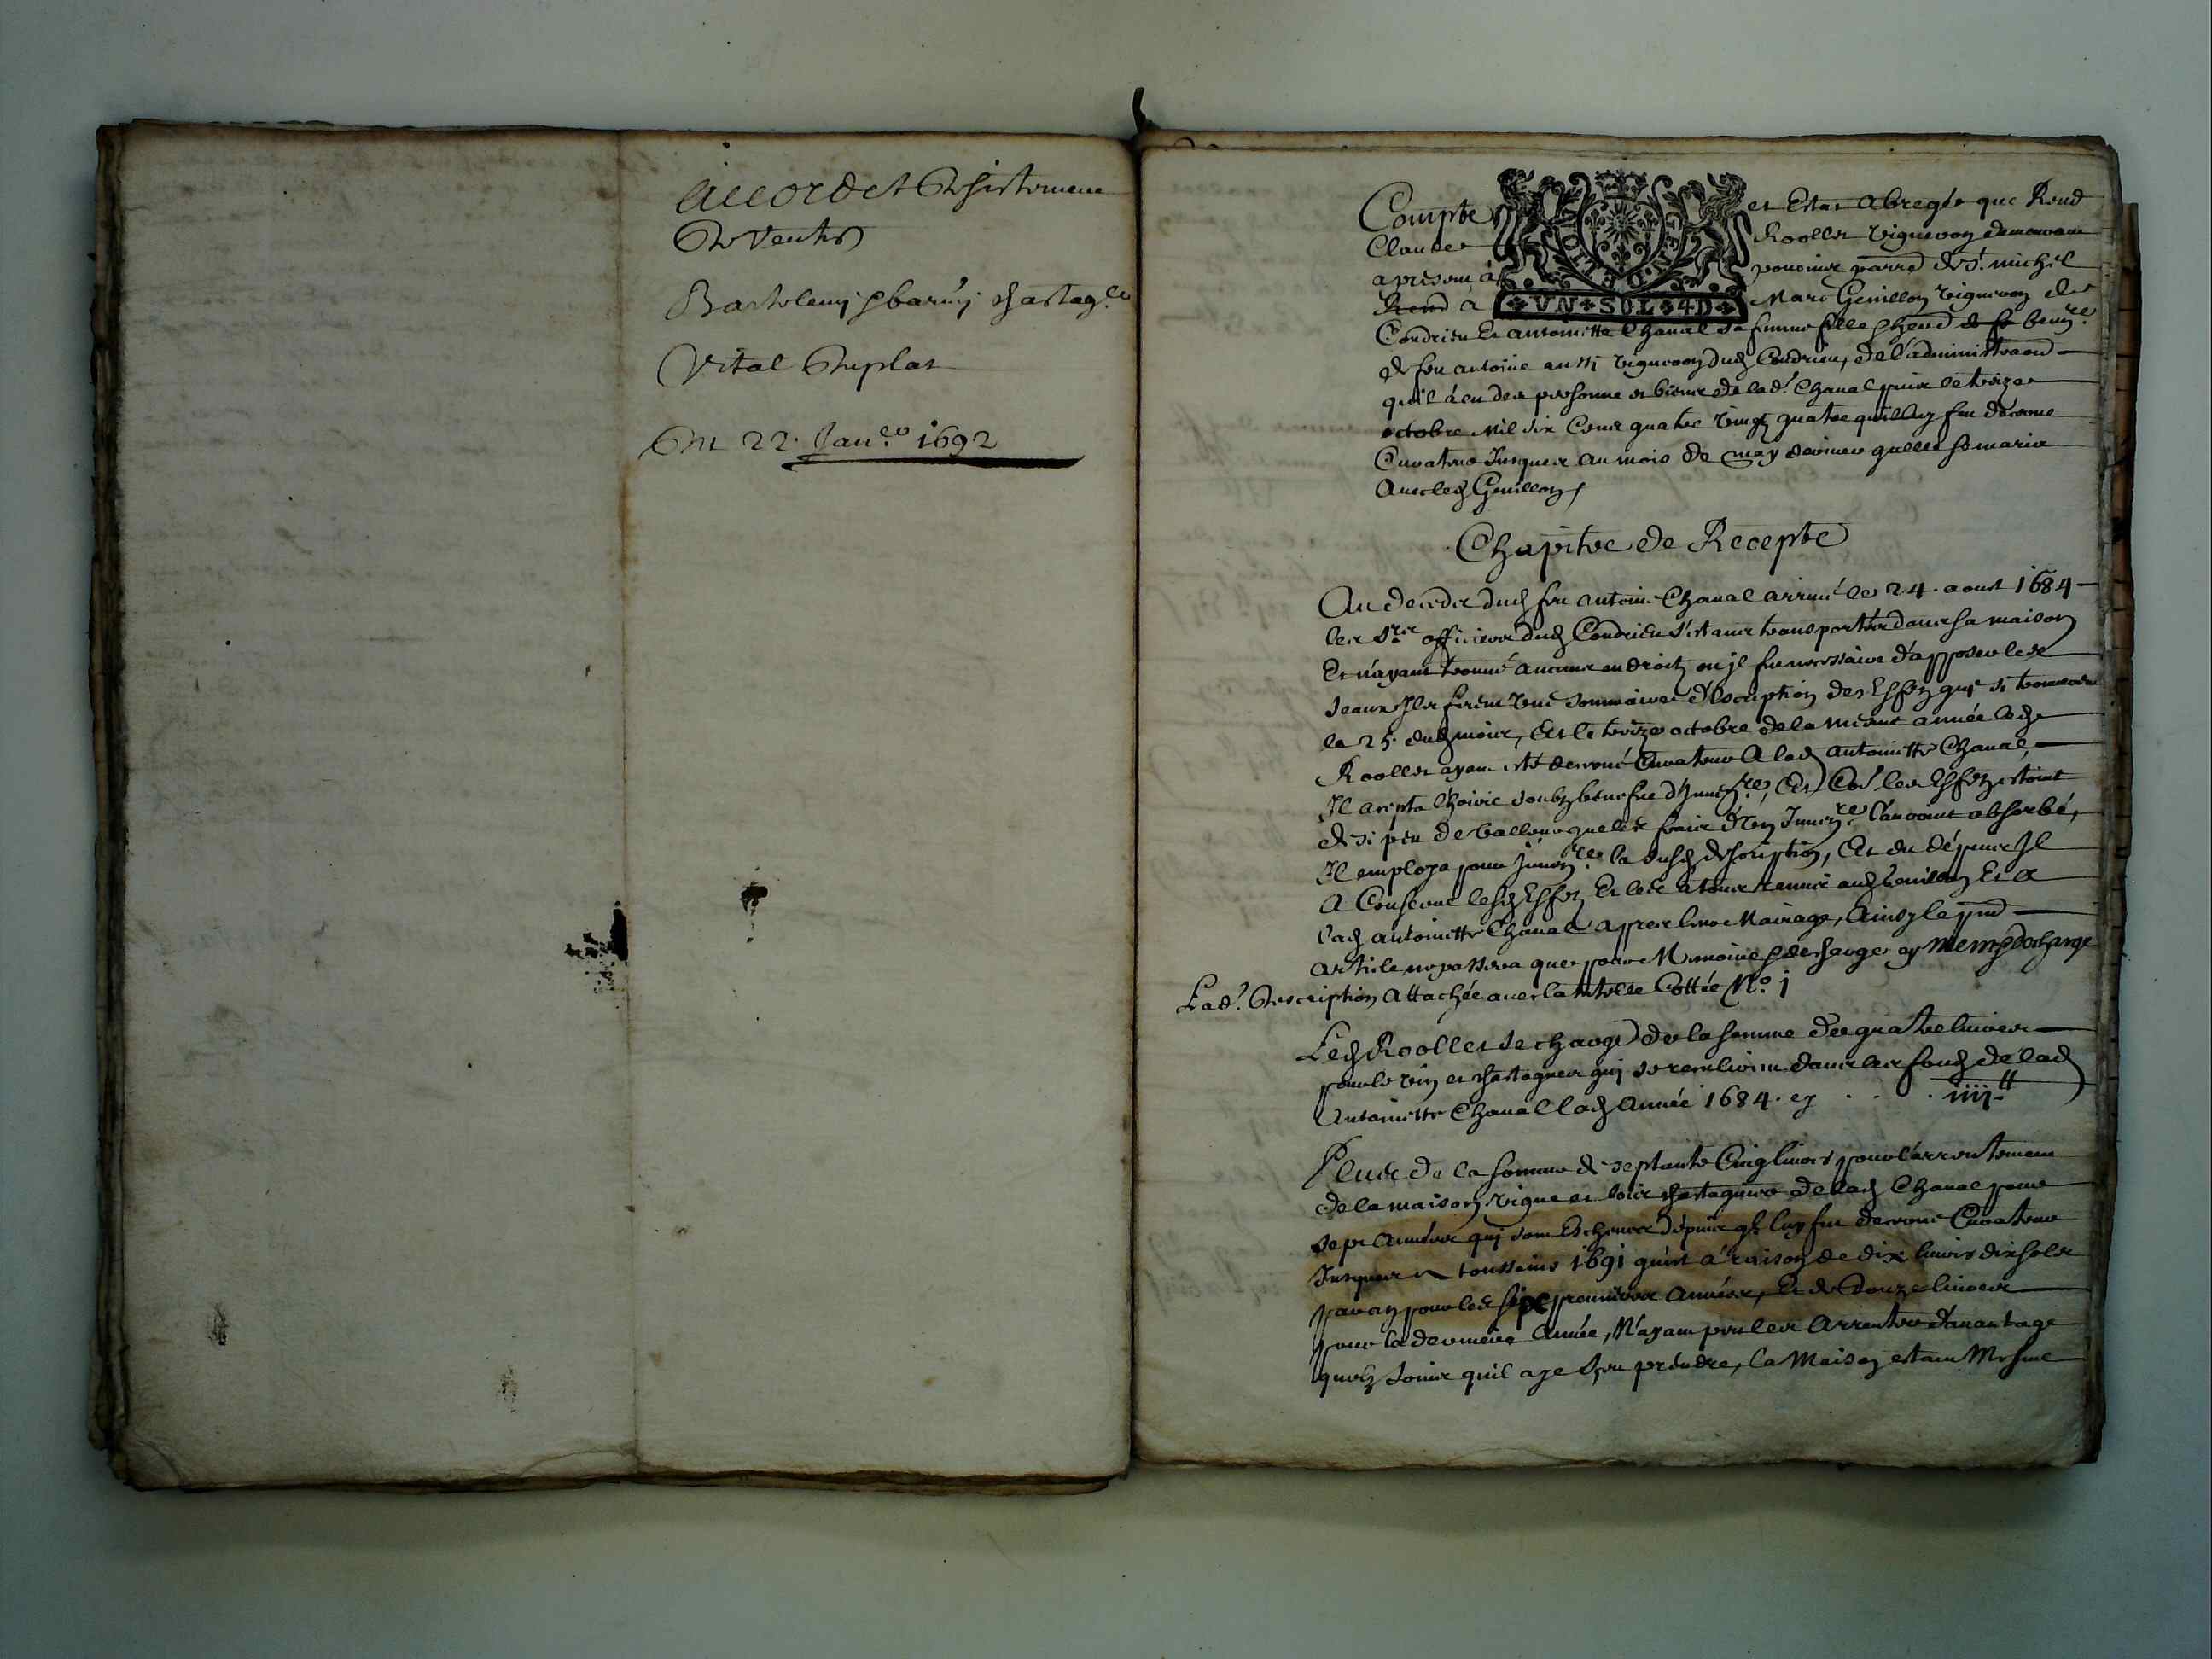 Accord et
De vente
Bartolemy chastag.
Vital Duplas
Du 22. Jan. 1692
Compte et Estat abregée que Rend
Claude Roollet vigneron demeurant
apresent à parr de St. michel
Rend a Marc Genillon vigneron de
VN SOL 4D
Condrieu Et antoinette Chanal sa femme fille
de feu antoine aussi vigneron dud Condrieu, de l'administraon
quil à eu des personne et biens de lad. Chanal puis le treize
octobre Mil six Cens quatre vingt quatre quil luy fut decerné
Curateur Jusques au mois de may dernier quelle se maria
Avec led Genillon
Chapitre de Recepte
Au decedz dud feu antoine Chanal arrivé le 24. aoust 1684
les Srs officiers dud Condrieu s'estant transportés dans sa maison
Et n'ayant trouvé aucuns endroitz ou jl fut necessaire d'apposer les
seaux Jls firent une sommaire description des Effetz qui si trouverent
le 25. dud mois, Et le treize octobre de la mesme année led
Roollet ayant esté decerné Curateur A lad antoinette Chanal,
Jl acepta l'hoirie soubz benefice d'Inuenre, Et les Effetz estoint
de si peu de valleur que les frais d'un Inuenre l'auroint absorbé,
Jl employa pour Jnuenre la susd description, Et du dépuis Jl
A Conservé lesd Effetz Et les a tous remis aud Genillon Et a
lad antoinette Chanal appres leur Mariage, Ainsy le pnt
article ne passera que pour Memoire
Lad. Description Attachée avec la tutelle Cottée No. 1
Led Roollet se charge de la somme de quatre livres
pour le vin et chastagnes qui se recullirent dans les fondz de lad
Antoinette Chanal lad Année 1684. cy . . . iiij tt
Plus de la somme de septante Cinq livres pour l'arrentement
de la maison vigne et bois chastagners de lad Chanal pour
sept années qui sont Escheues dépuis luy fut decerné Curateur
Jusques a toussains 1691 qu'est à raison de dix livres dix sols
par an pour les six premieres Années, Et de Douze livres
pour la derniere Année, N'ayant peu les Arrenter d'avantage
quelz soins quil aye sceu prendre, la Maison estant Mesme